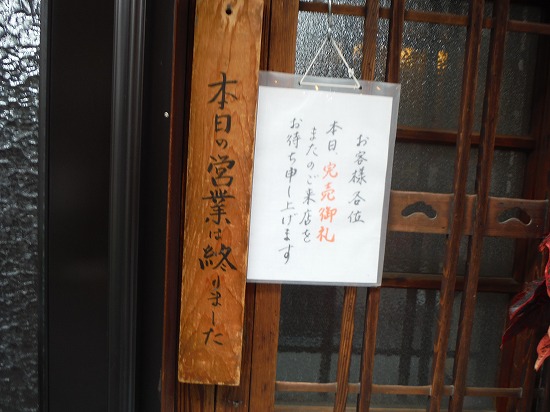 お客様各位
本日、完売御礼
またのご来店を
お待ち申し上げます
本日の営業は終りました